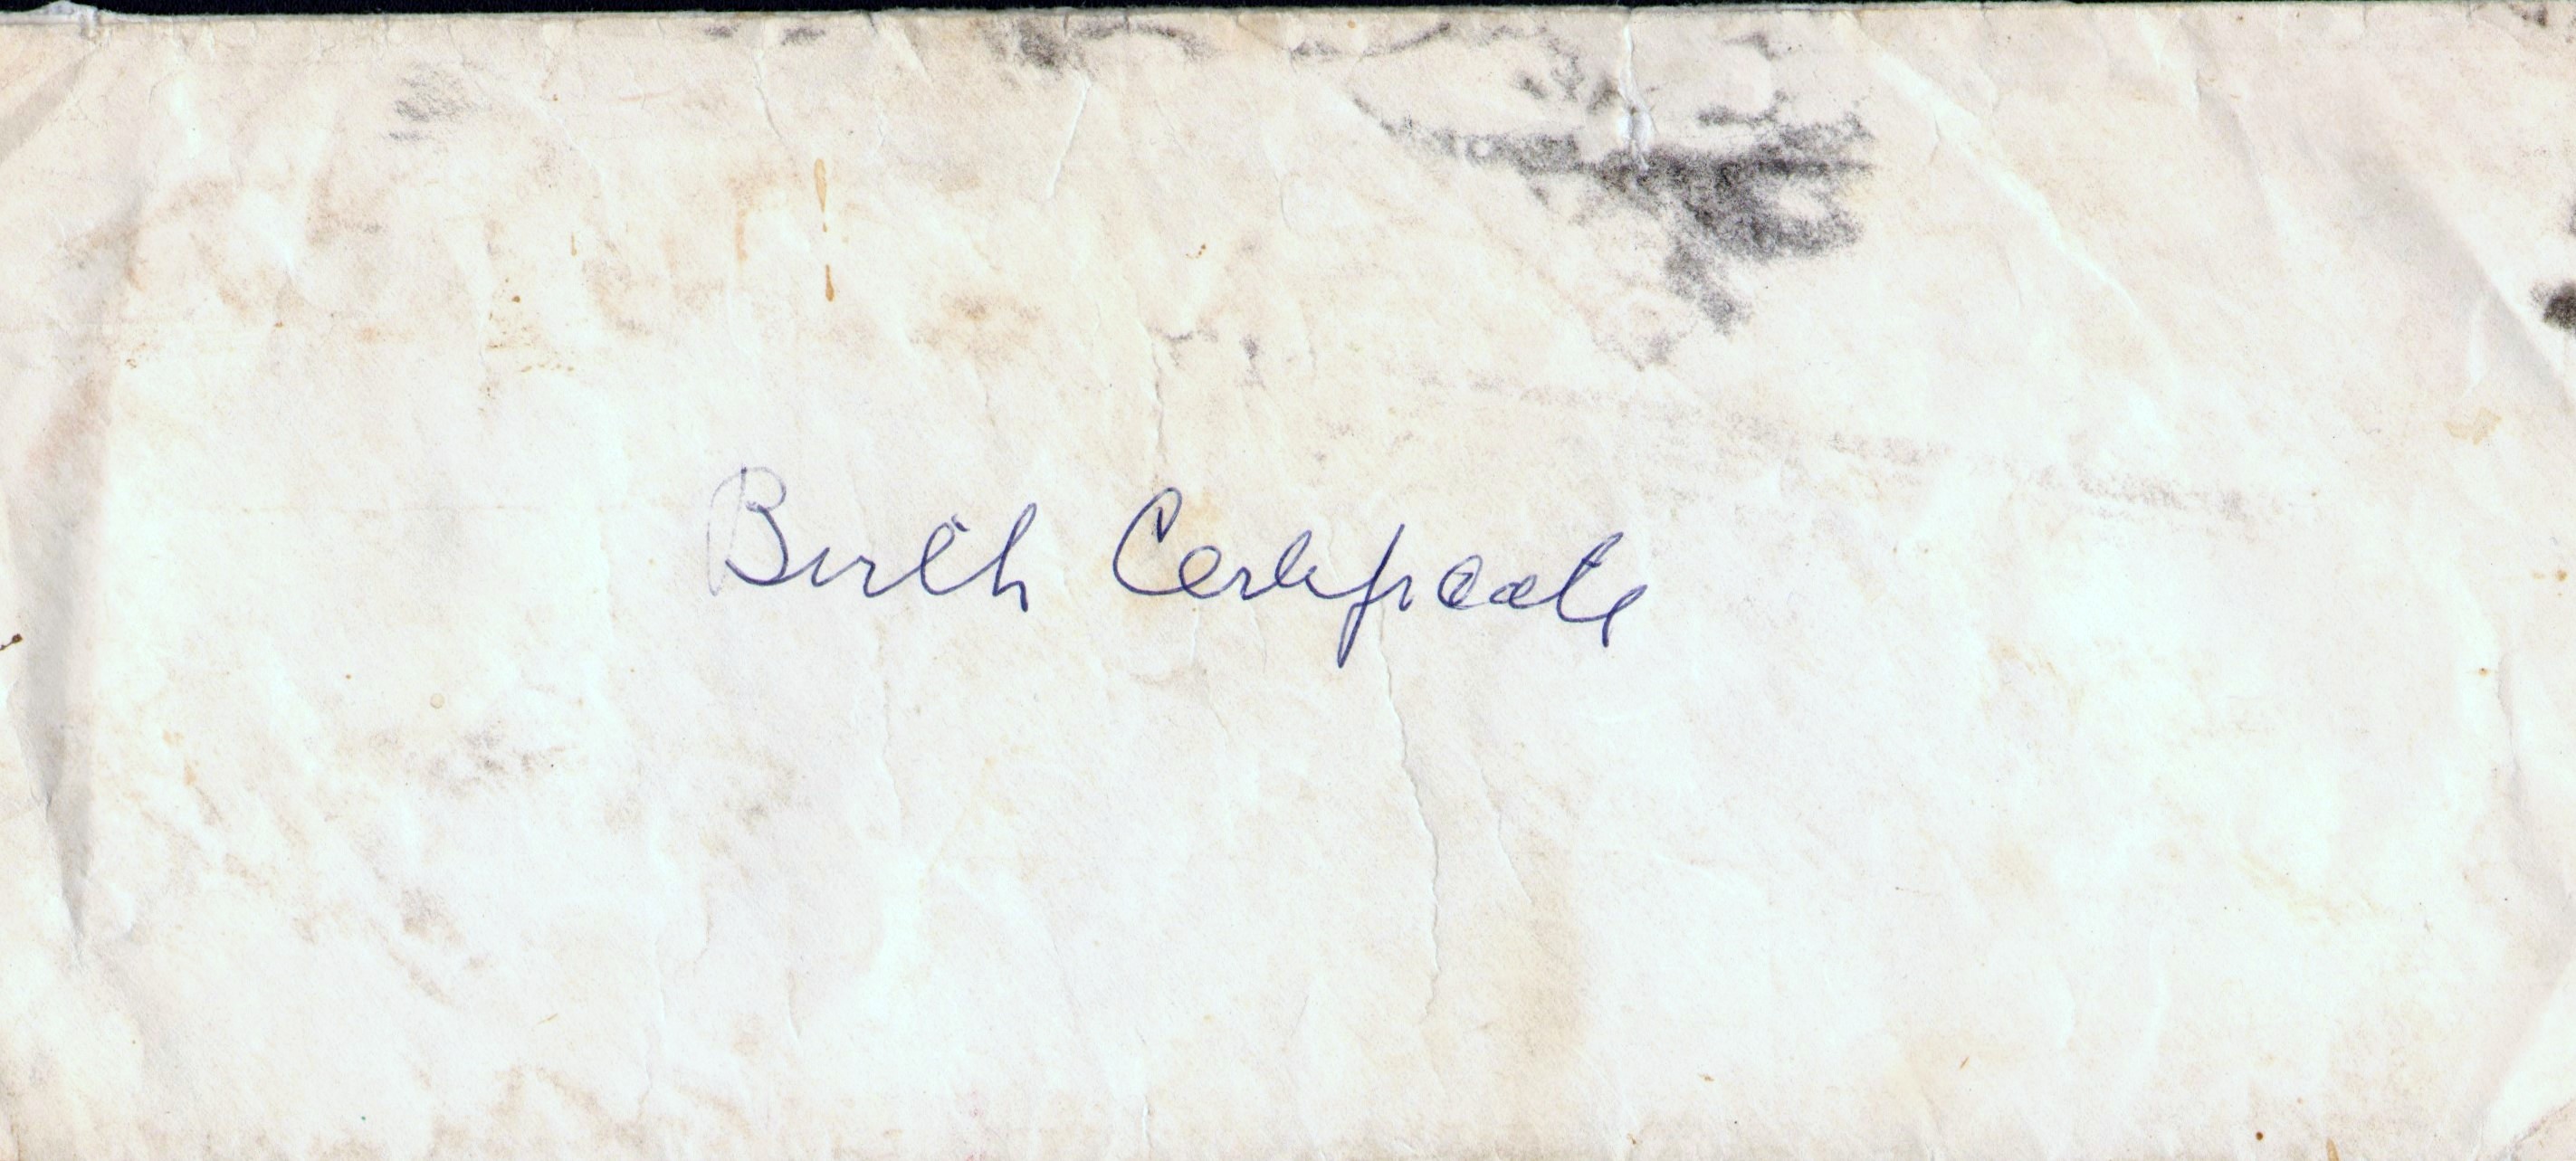 Birth Certificate